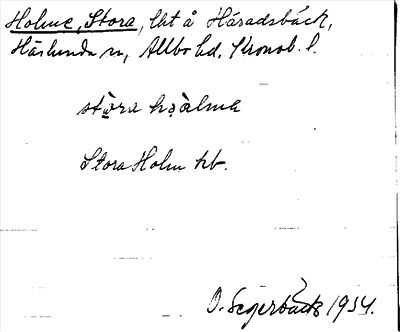 Holme, Stora, lht å Häradsbäck,
Härlunda sn, Allbo hd, Kronob. l.
stòra hɔ̀lma
Stora Holm kb.
O. Segerbäck 1934.